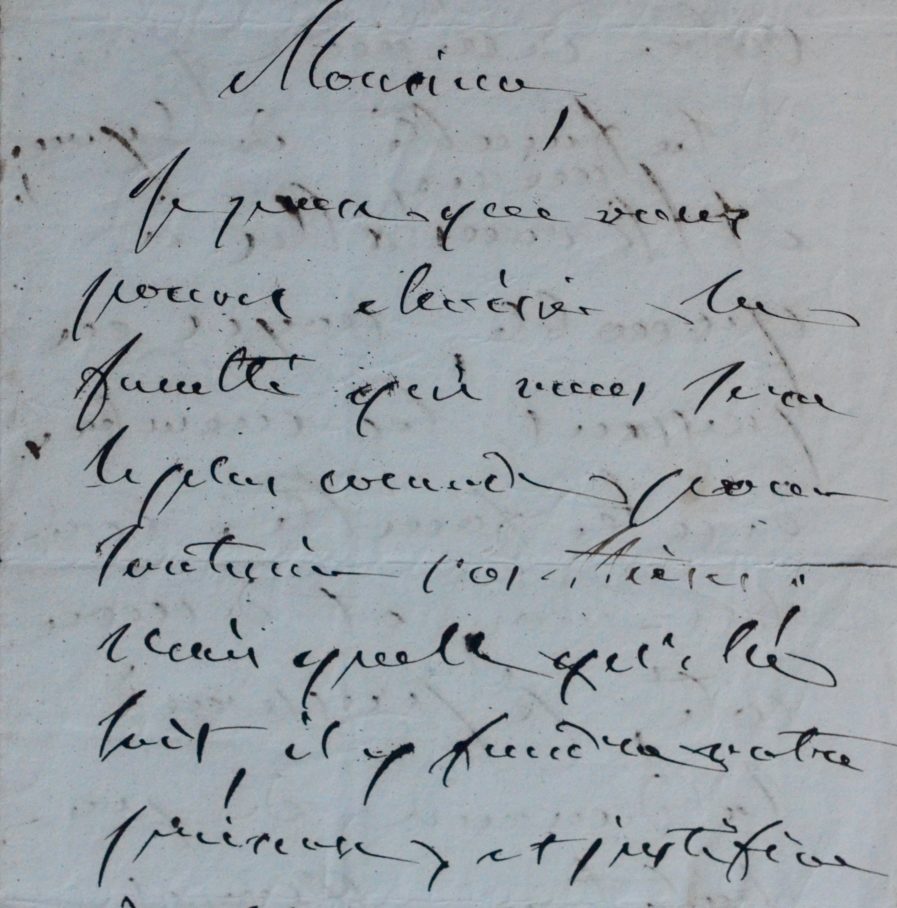 Monsieur,
Je pense que vous
pouvez choisir la
faculté qui vous sera
le plus commode, pour
soutenir vos thèses ;
mais quelle qu'elle
soit, il y faudra votre
présence, et justifier